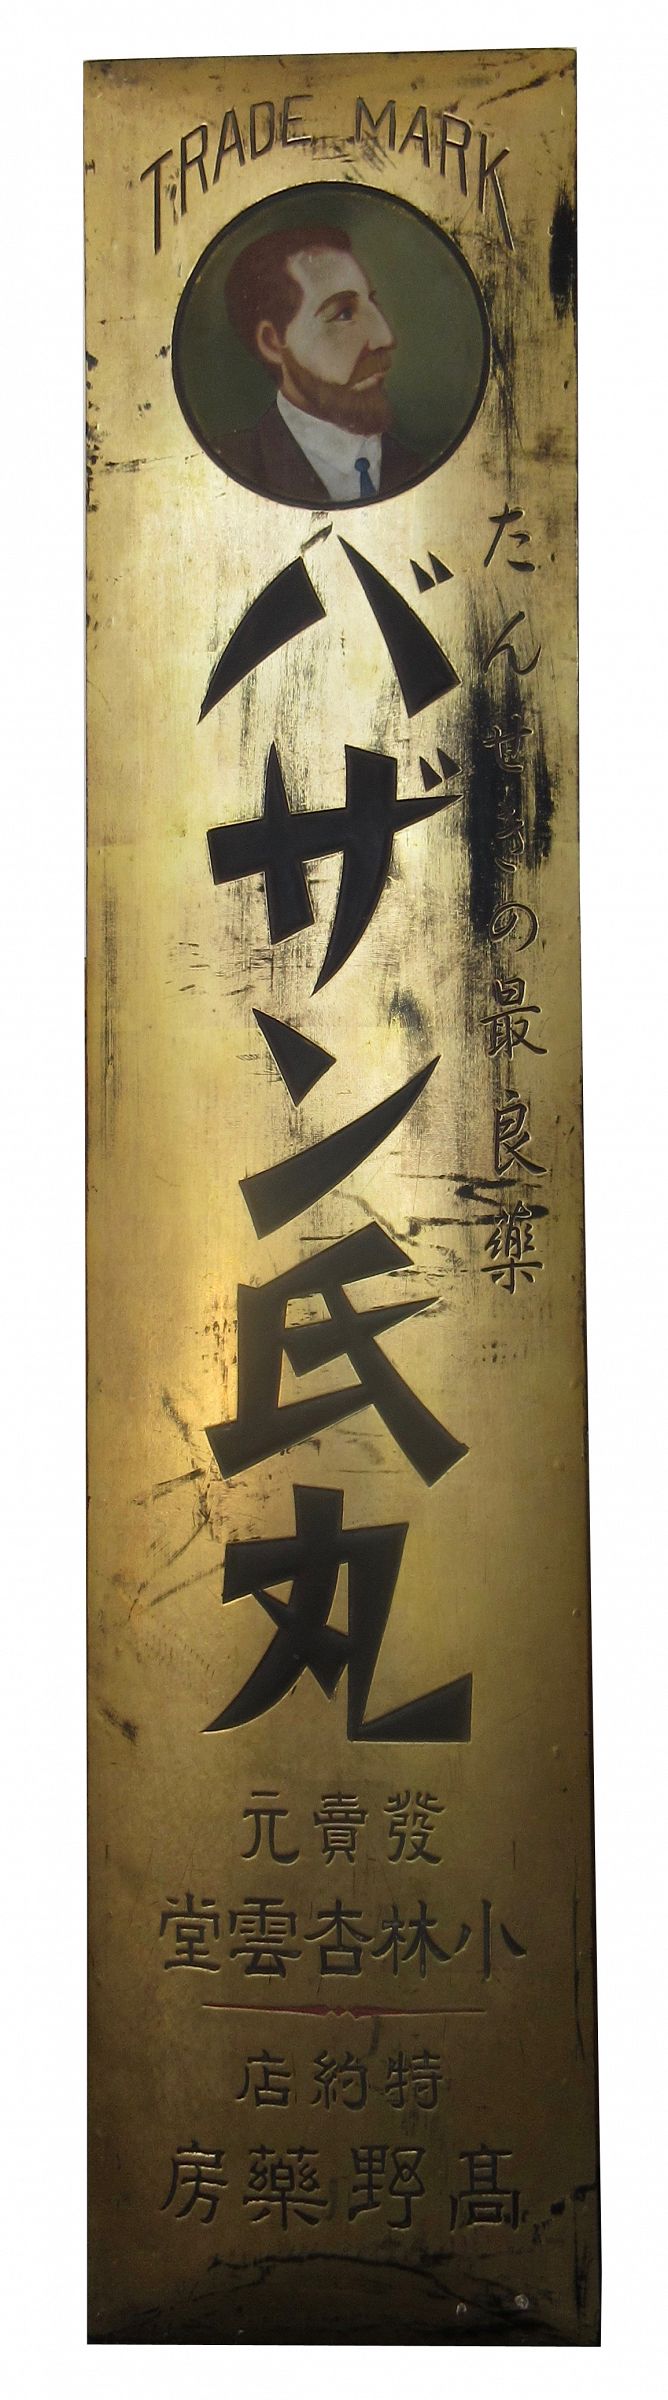 TRADE MARK
たんせきの最良藥
バザン氏丸
發賣元
小林杏雲堂
特約店
髙野藥房